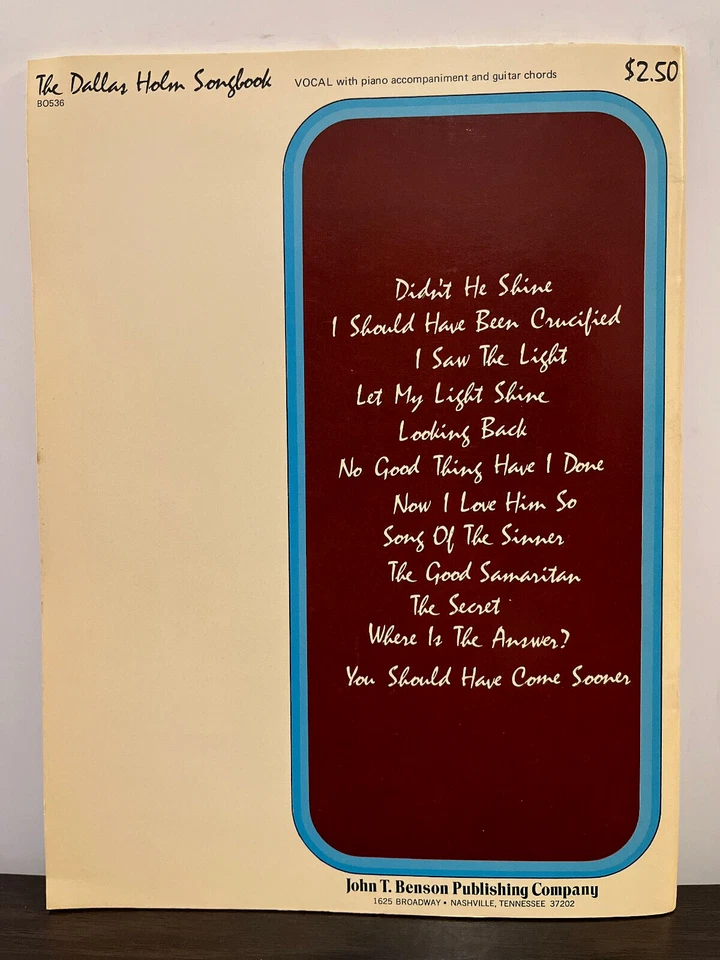 The Dallas Holm Songbook
VOCAL with piano accompaniment and guitar chords
$2.50
BO536
Didn't He Shine
I Should Have Been Crucified
I Saw The Light
Let My Light Shine
Looking Back
No Good Thing Have I Done
Now I Love Him So
Song Of The Sinner
The Good Samaritan
The Secret
Where Is The Answer?
You Should Have Come Sooner
John T. Benson Publishing Company
1625 BROADWAY • NASHVILLE, TENNESSEE 37202